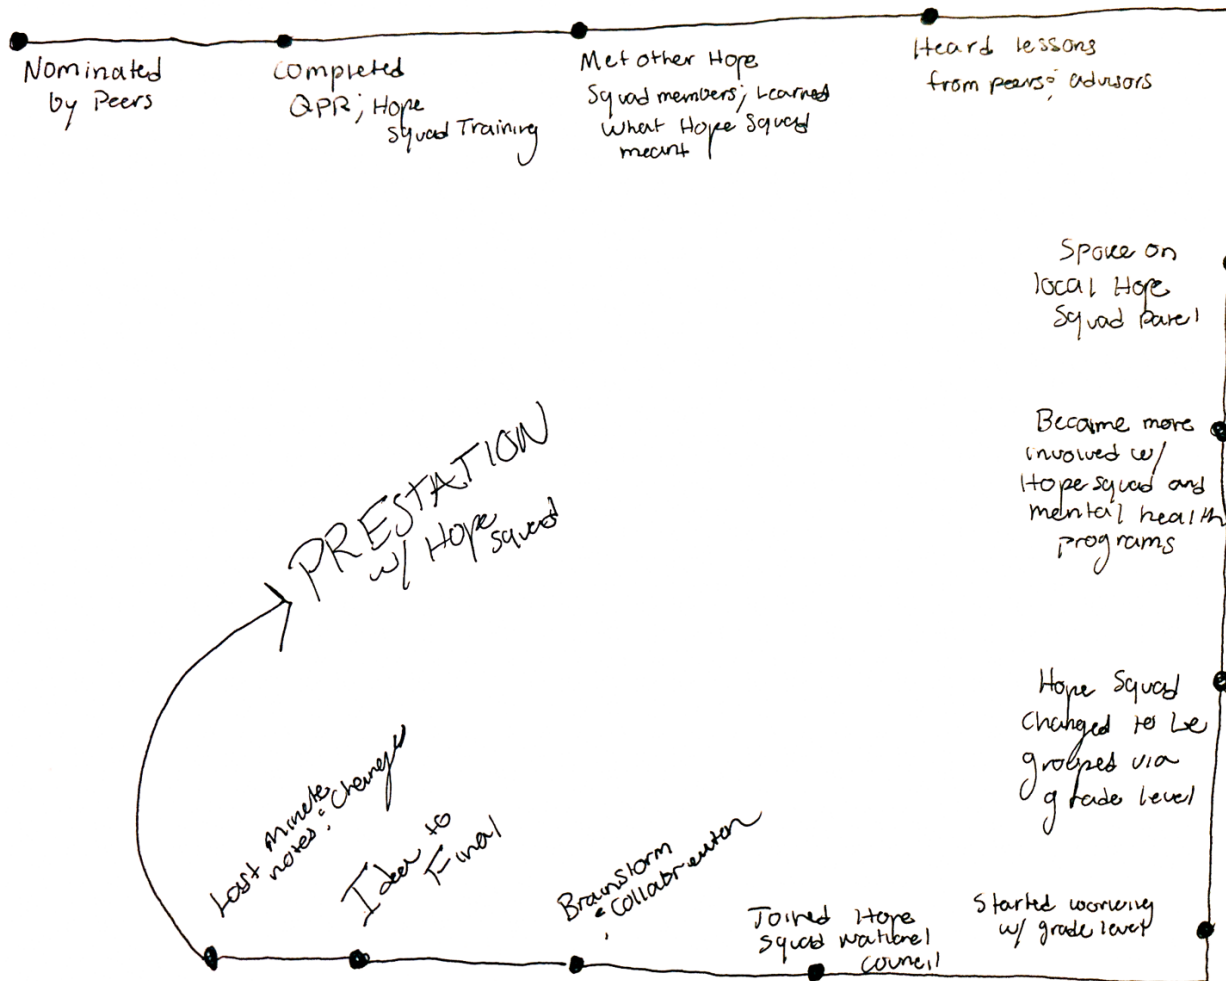 Nominated
by Peers
Completed
QPR; Hope
Squad Training
Met other Hope
Squad members; Learned
what Hope Squad
meant
Heard lessons
from peers & advisors
Spoke on
local Hope
Squad Panel
Became more
involved w/
Hope squad and
mental health
programs
Hope Squad
changed to be
grouped via
grade level
Started working
w/ grade level
Joined Hope
Squad national
council
Brainstorm
& collaboration
Idea to
Final
Last minute
notes & changes
PRESTATION
w/ Hope
squad